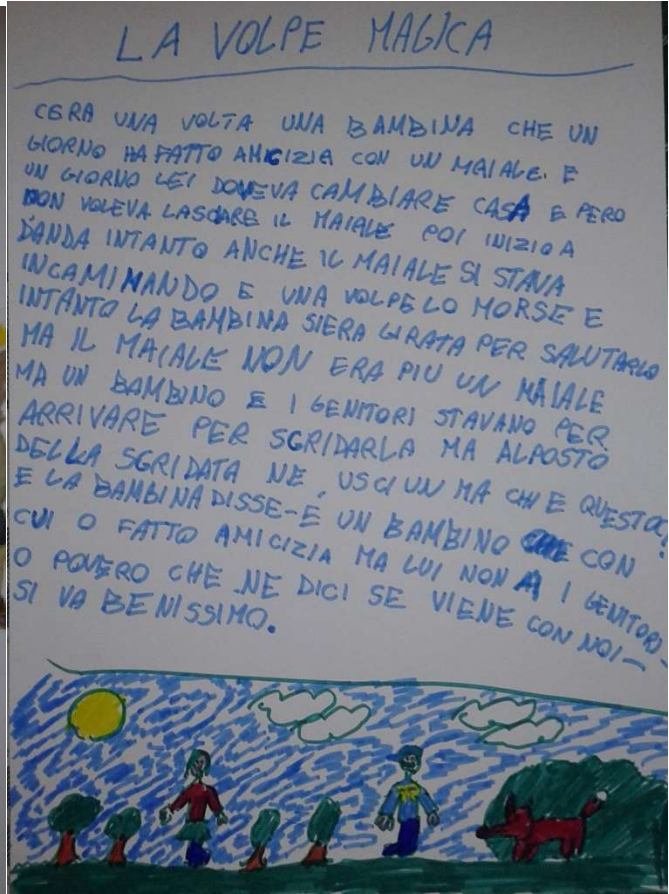 LA VOLPE MAGICA
CERA UNA VOLTA UNA BAMBINA CHE UN
GIORNO HA FATTO AMICIZIA CON UN MAIALE. E
UN GIORNO LEI DOVEVA CAMBIARE CASA E PERO
NON VOLEVA LASCIARE IL MAIALE POI INIZIO A
D'ANDA INTANTO ANCHE IL MAIALE SI STAVA
INCAMINANDO E UNA VOLPE LO MORSE E
INTANTO LA BAMBINA SIERA GIRATA PER SALUTARLO
MA IL MAIALE NON ERA PIU UN MAIALE
MA UN BAMBINO E I GENITORI STAVANO PER
ARRIVARE PER SGRIDARLA MA ALPOSTO
DELLA SGRIDATA NE USCI UN MA CHI E QUESTO!
E LA BAMBINA DISSE-E UN BAMBINO CHE CON
CUI O FATTO AMICIZIA MA LUI NON A I GENITORI-
O POVERO CHE NE DICI SE VIENE CON NOI-
SI VA BENISSIMO.